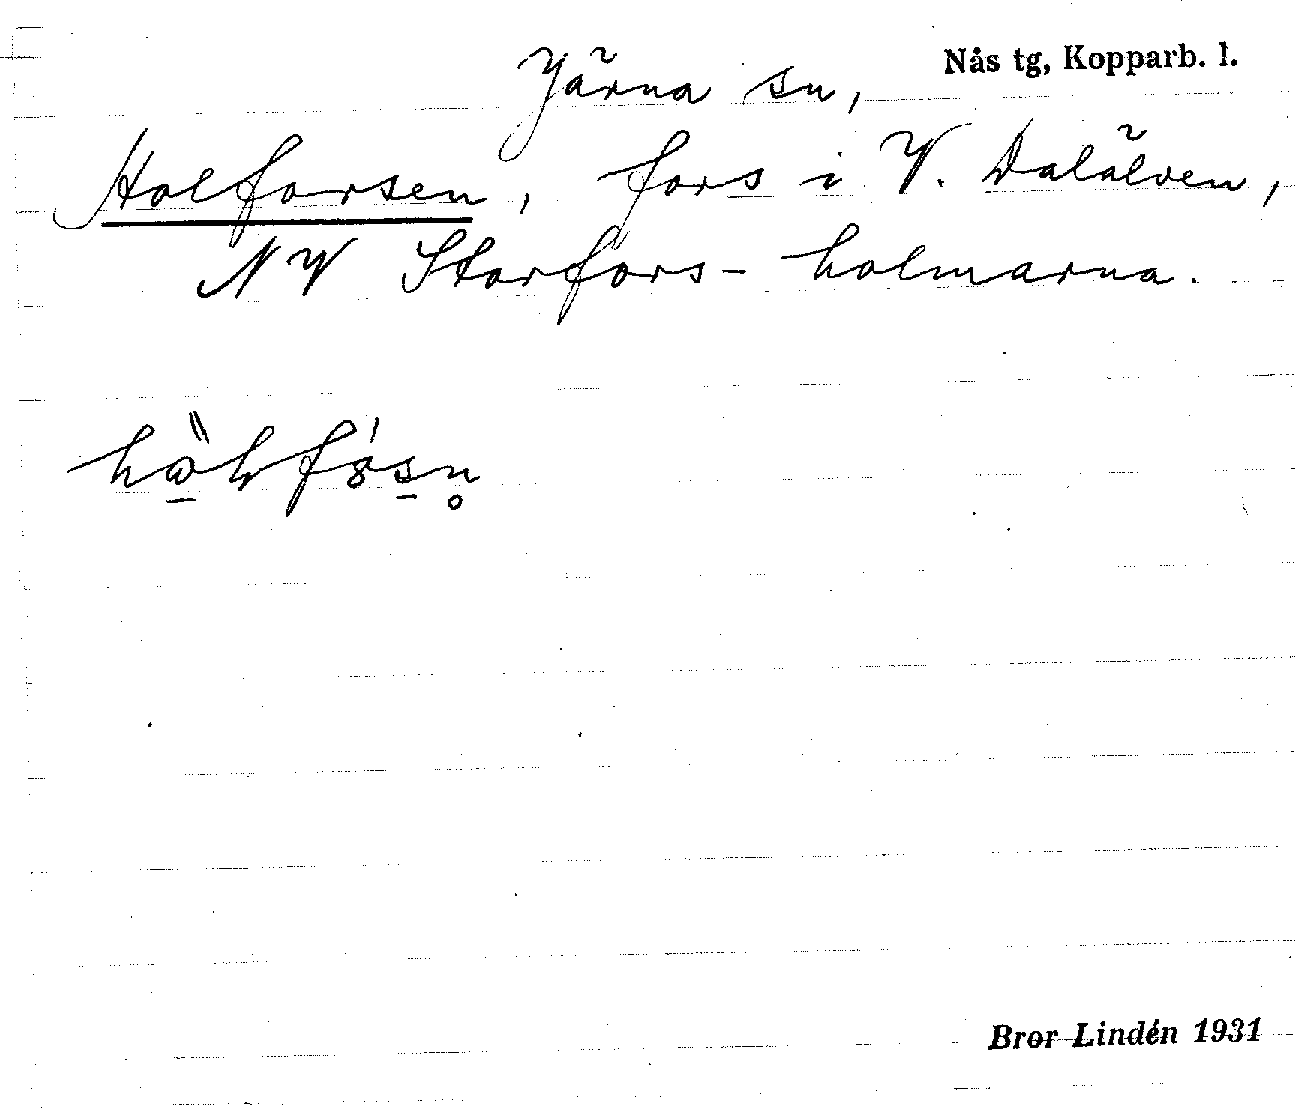 Nås tg, Kopparb. l.
Järna sn,
Holforsen, fors i V. Dalälven,
NV Storfors-holmarna.
Bror Lindén 1931